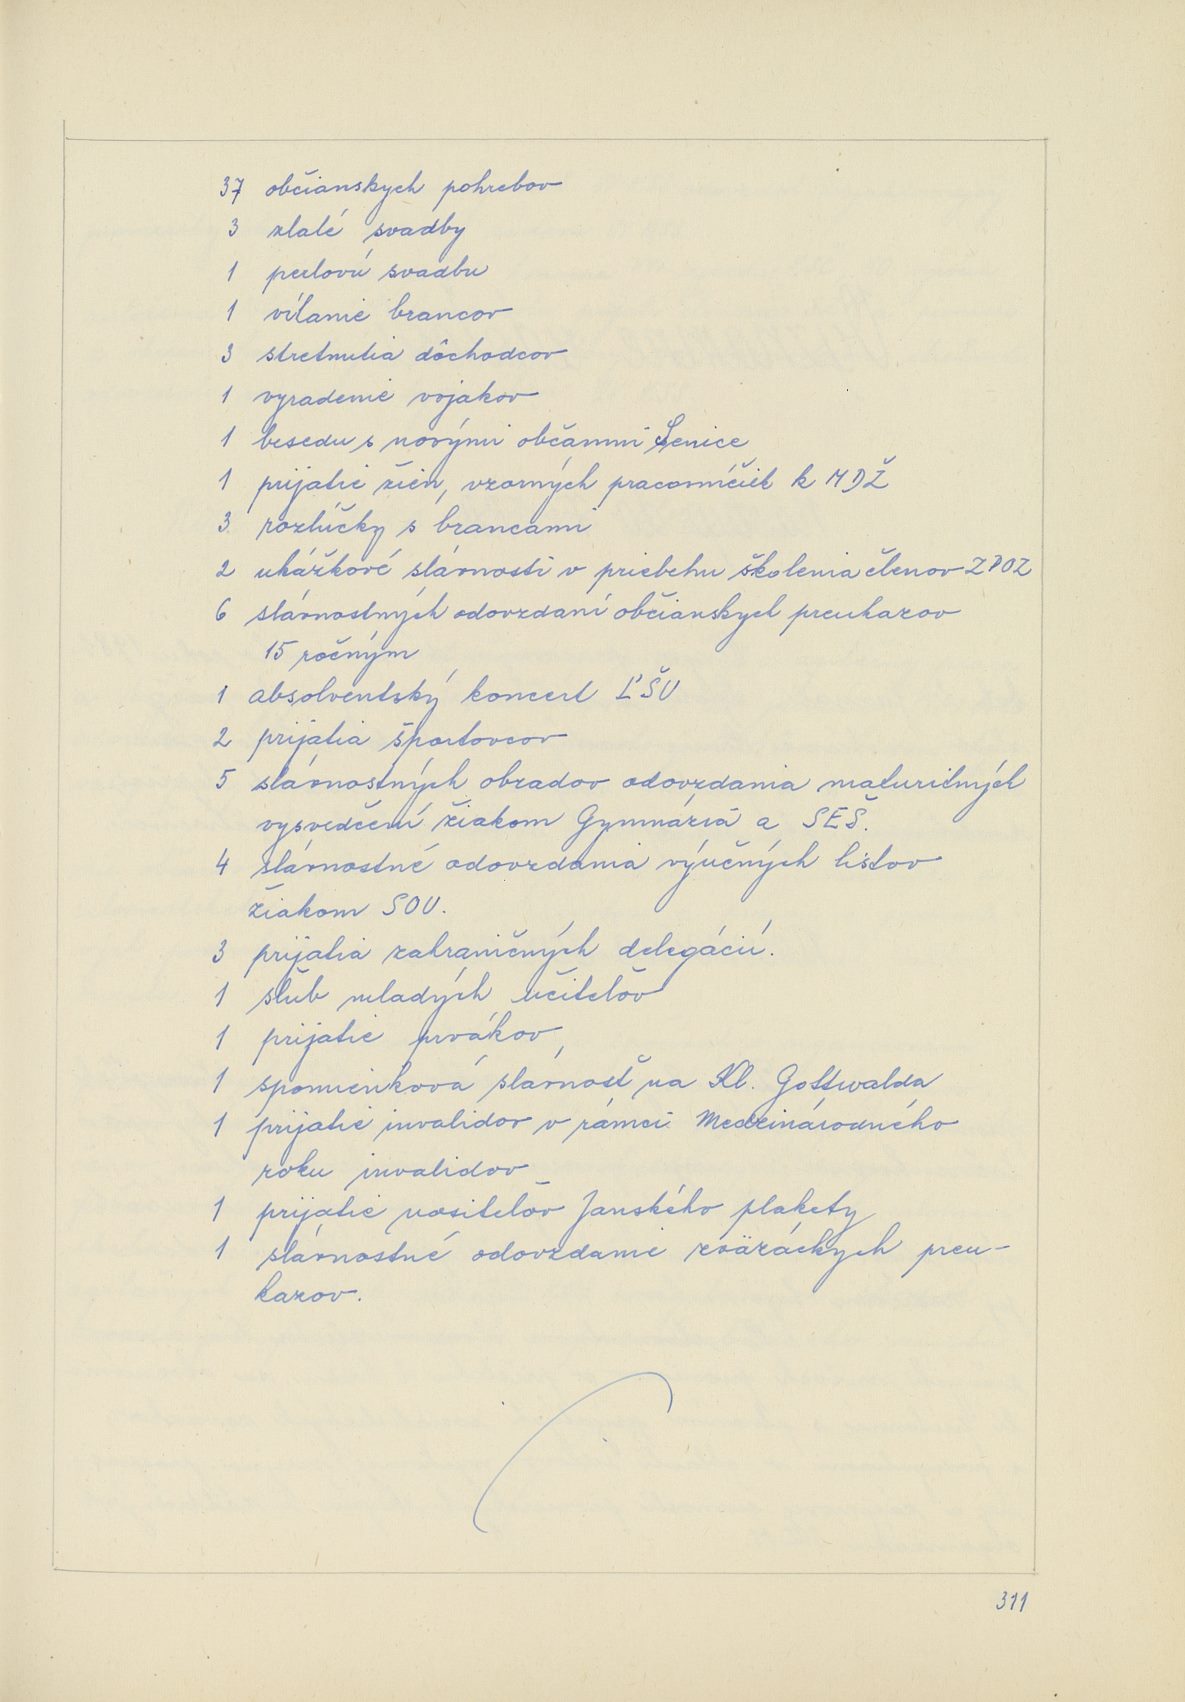 37 občianskych pohrebov
3 zlaté svadby
1 perlovú svadbu
1 vítanie brancov
3 stretnutia dôchodcov
1 vyradenie vojakov
1 besedu s novými občanmi Senice
1 prijatie žien, vzorných pracovníčiek k MDŽ
3 rozlúčky s brancami
2 ukážkové slávnosti v priebehu školenia členov ZPOZ
6 slávnostných odovzdaní občianskych preukazov
15 ročným
1 absolventský koncert ĽŠU
2 prijatia športovcov
5 slávnostných obradov odovzdania maturitných
vysvedčení žiakom Gymnázia a SEŠ.
4 slávnostné odovzdania výučných listov
žiakom SOU.
3 prijatia zahraničných delegácií.
1 sľub mladých učiteľov
1 prijatie prvákov,
1 spomienková slávnosť na Kl. Gottwalda
1 prijatie invalidov v rámci Medzinárodného
roku invalidov
1 prijatie nositeľov Janského plakety
1 slávnostné odovzdanie zväzáckych preu-
kazov.
311